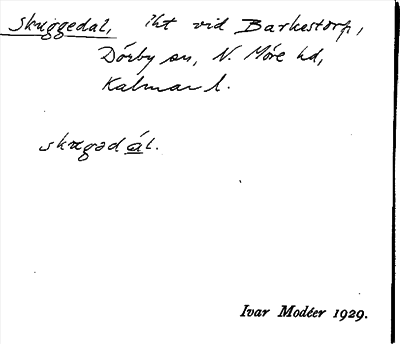 Skuggedal, iht vid Barkestorp,
Dörby sn, N. Möre hd,
Kalmar l.
Ivar Modéer 1929.